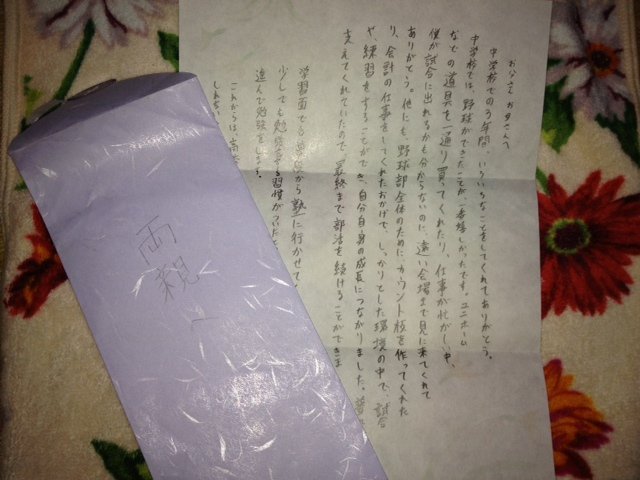 お父さん お母さんへ
中学校での3年間、いろいろなことをしてくれてありがとう。
中学校では、野球ができたことが、一番嬉しかったです。ユニホーム
などの道具を一通り買ってくれたり、仕事が忙がしい中、
僕が試合に出れるかも分からないのに、遠い会場まで見に来てくれて
ありがとう。他にも、野球部全体のために、カウント板を作ってくれた
り、会計の仕事をしてくれたおかげで、しっかりとした環境の中で、試合
や、練習をすることができ、自分自身の成長につながりました。
支えてくれていたので、最終まで部活を続けることができま
学習面でも
から塾に行かせて
少しでも勉強する習慣がついた
進んで勉強をします。
これからは、高
しれない
両親へ